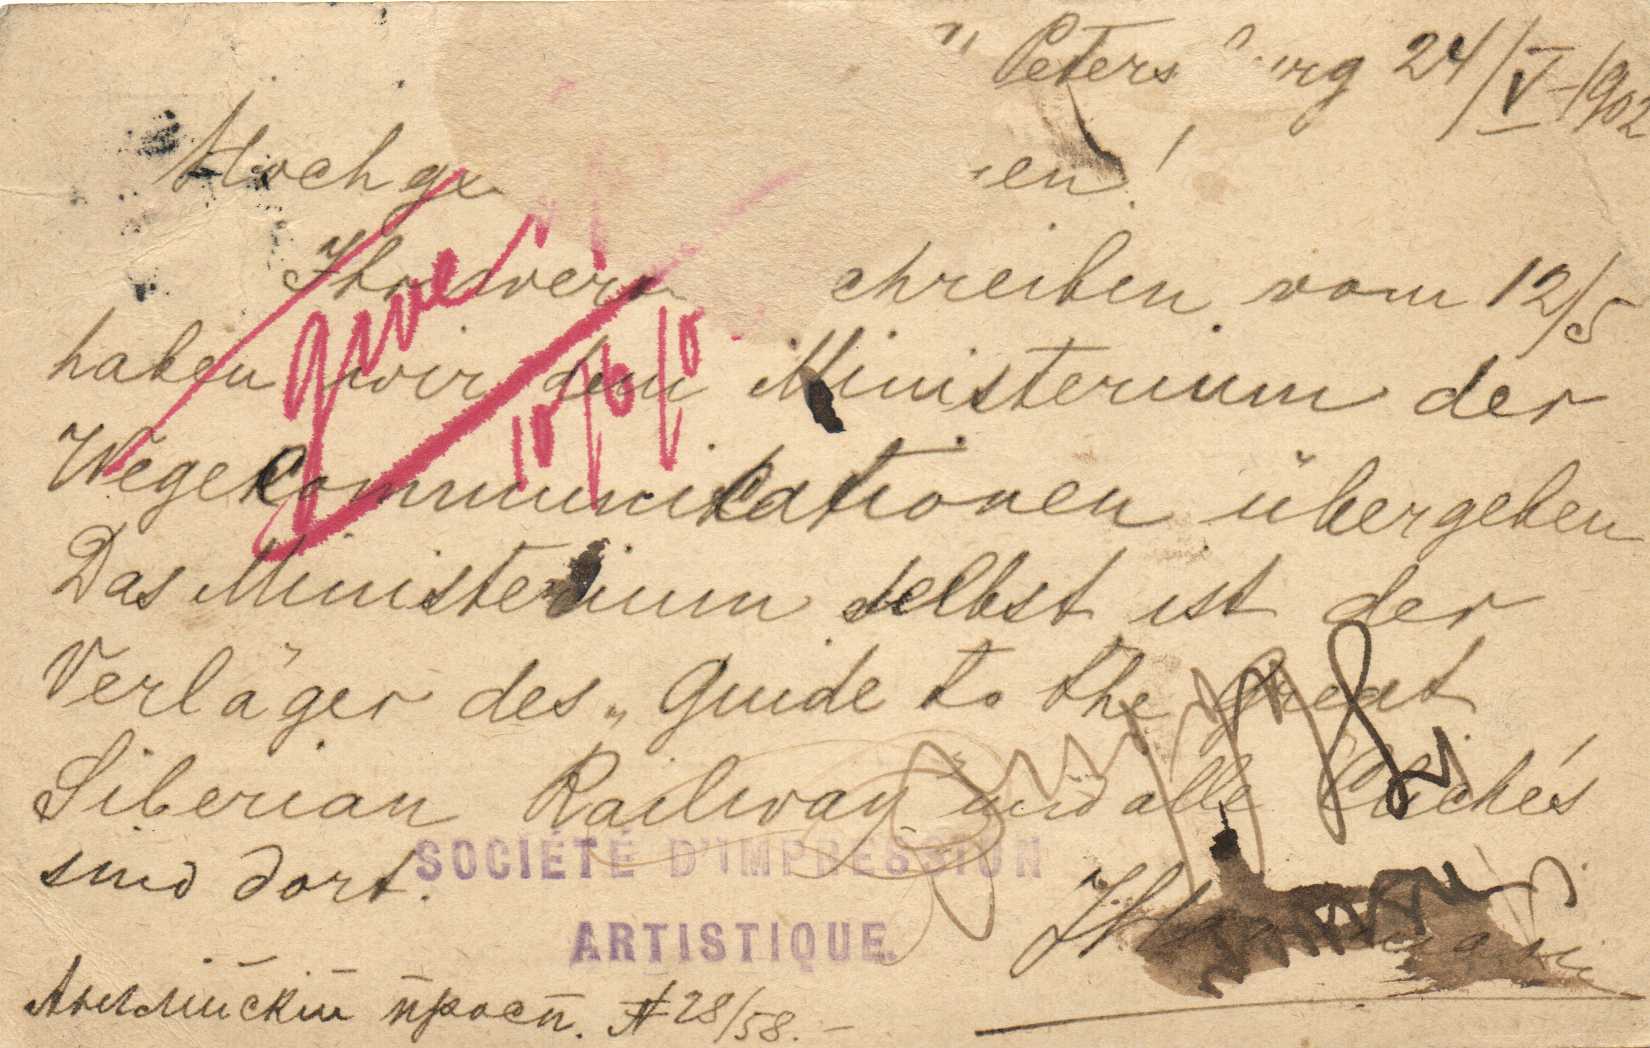 Petersburg 24/V-1902
Hochge en!
Ihr wer chreiben vom 12/5
haben wir dem Ministerium der
Wegekommunikationen übergeben
Das Ministerium selbst ist der
Verläger des „Guide to the Great
Siberian Railway" und alle Clichés
sind dort.
SOCIÉTÉ D'IMPRESSION
ARTISTIQUE.
Английскій просп. № 28/58.-